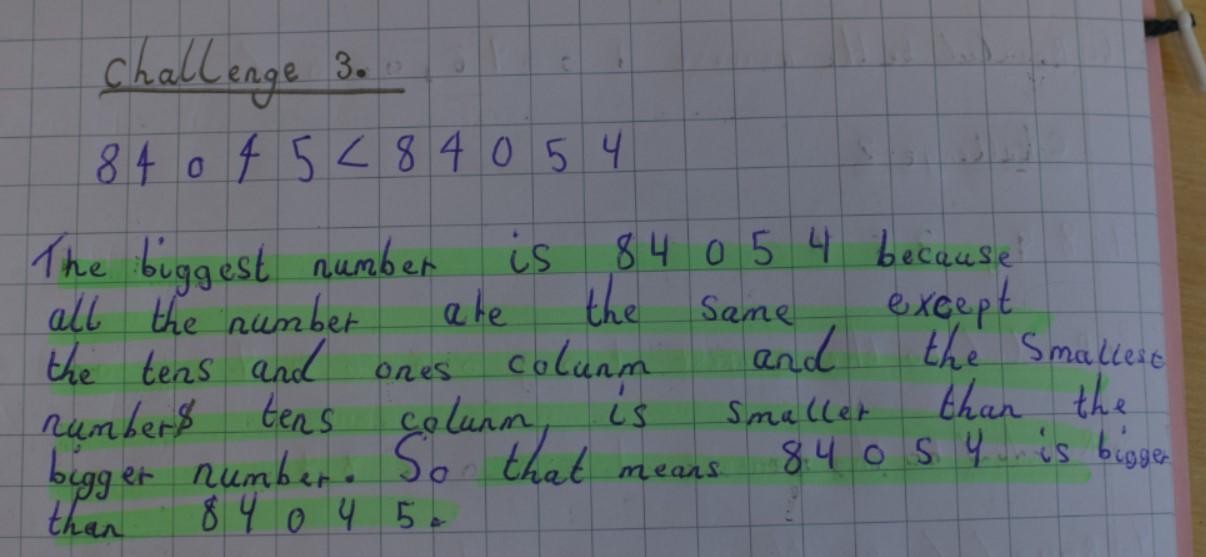 Challenge 3.
8 4 0 4 5 < 8 4 0 5 4
The biggest number is 8 4 0 5 4 because
all the number are the same except
the tens and ones colunm and the smallest
numbers tens colunm, is smaller than the
bigger number. So that means 8 4 0 5 4 is bigger
than 8 4 0 4 5.